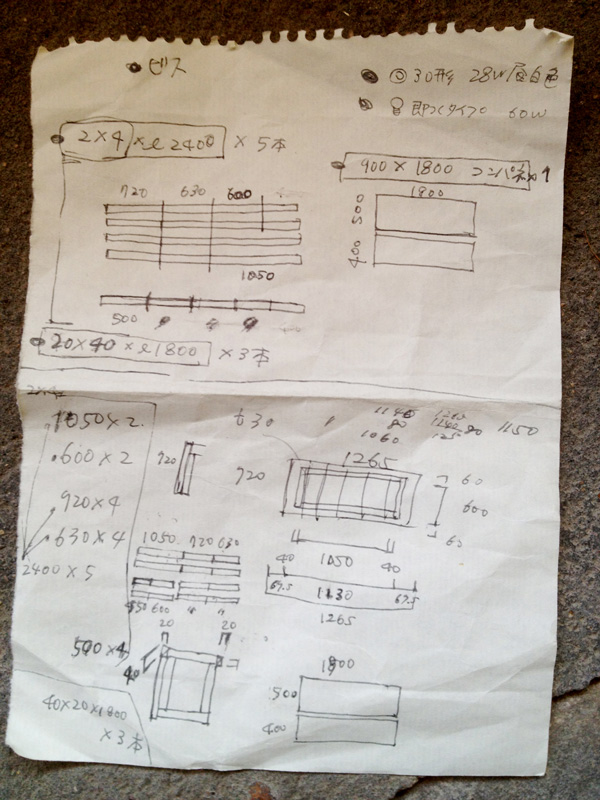 ビス
◎30形 28W 昼白色
即つくタイプ 60W
2×4 × ℓ2400 × 5本
900 × 1800 コンパネ×1
720 630 600
1800
500
400
1050
500
20×40 × ℓ1800 × 3本
1050×2
・600×2
630
1140 80 1060
1150
1265
720
720
920×4
・630×4
2400×5
60
600
60
1050 720 630
40 1050 40
67.5 1130 67.5
1265
20 20
500×4
40
1800
500
400
40×20×1800
×3本